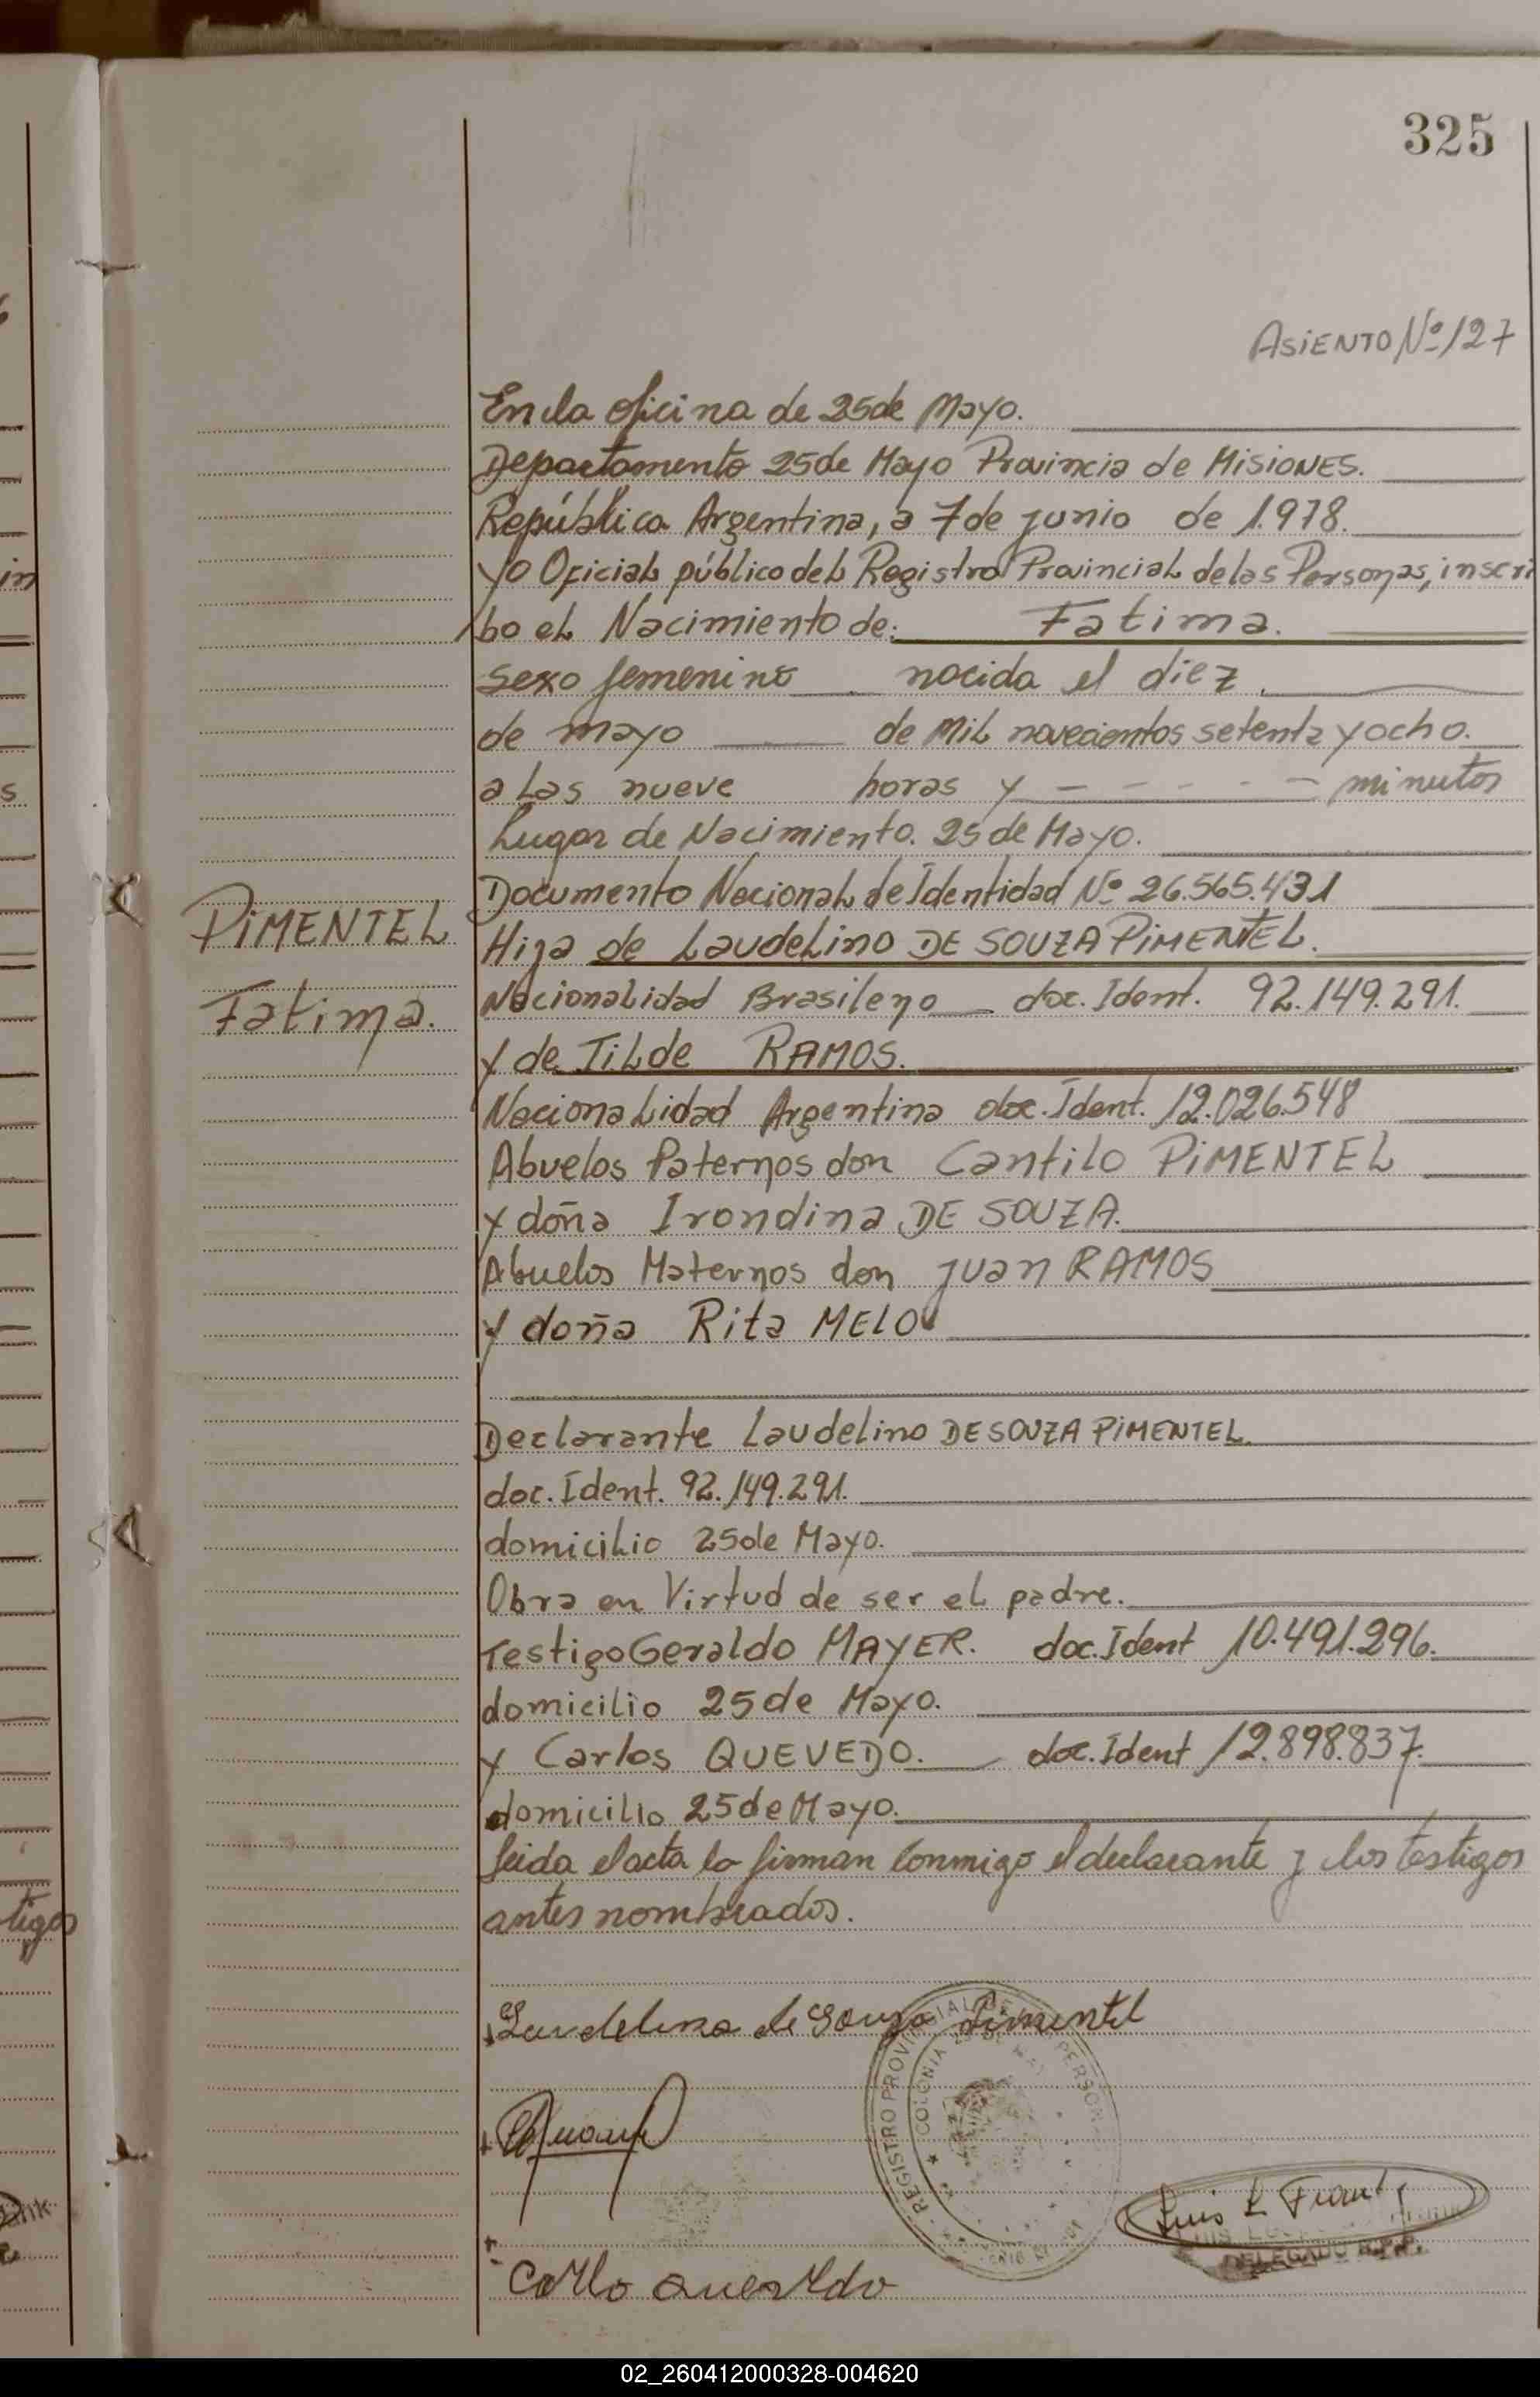 325
ASIENTO Nº 127
En la oficina de 25 de Mayo.
Departamento 25 de Mayo Provincia de MISIONES.
República Argentina, a 7 de junio de 1.978.
yo Oficial público del Registro Provincial de las Personas, inscri
bo el Nacimiento de: Fatima.
Sexo femenino nacida el diez
de mayo de Mil novecientos setenta y ocho.
a las nueve horas y - - - - - minutos
Lugar de Nacimiento. 25 de Mayo.
Documento Nacional de Identidad Nº 26.565.431
PIMENTEL
Fatima.
Hija de Laudelino DE SOUZA PIMENTEL.
Nacionalidad Brasileno doc. Ident. 92.149.291.
y de Tilde RAMOS.
Nacionalidad Argentina doc. Ident. 12.026.548
Abuelos Paternos don Cantilo PIMENTEL
y doña Irondina DE SOUZA.
Abuelos Maternos don Juan RAMOS
y doña Rita MELO
Declarante Laudelino DE SOUZA PIMENTEL.
doc. Ident. 92.149.291.
domicilio 25 de Mayo.
Obra en Virtud de ser el padre.
Testigo Geraldo MAYER. doc. Ident 10.491.296.
domicilio 25 de Mayo.
y Carlos QUEVEDO. doc. Ident 12.898.837.
domicilio 25 de Mayo.
Leida el acta la firman conmigo el declarante y los testigos
antes nombrados.
Laudelino de Souza Pimentel
REGISTRO PROVINCIAL DE PERSON
COLONIA
Luis L Frank
DELEGADO R.P.P.
02_260412000328-004620